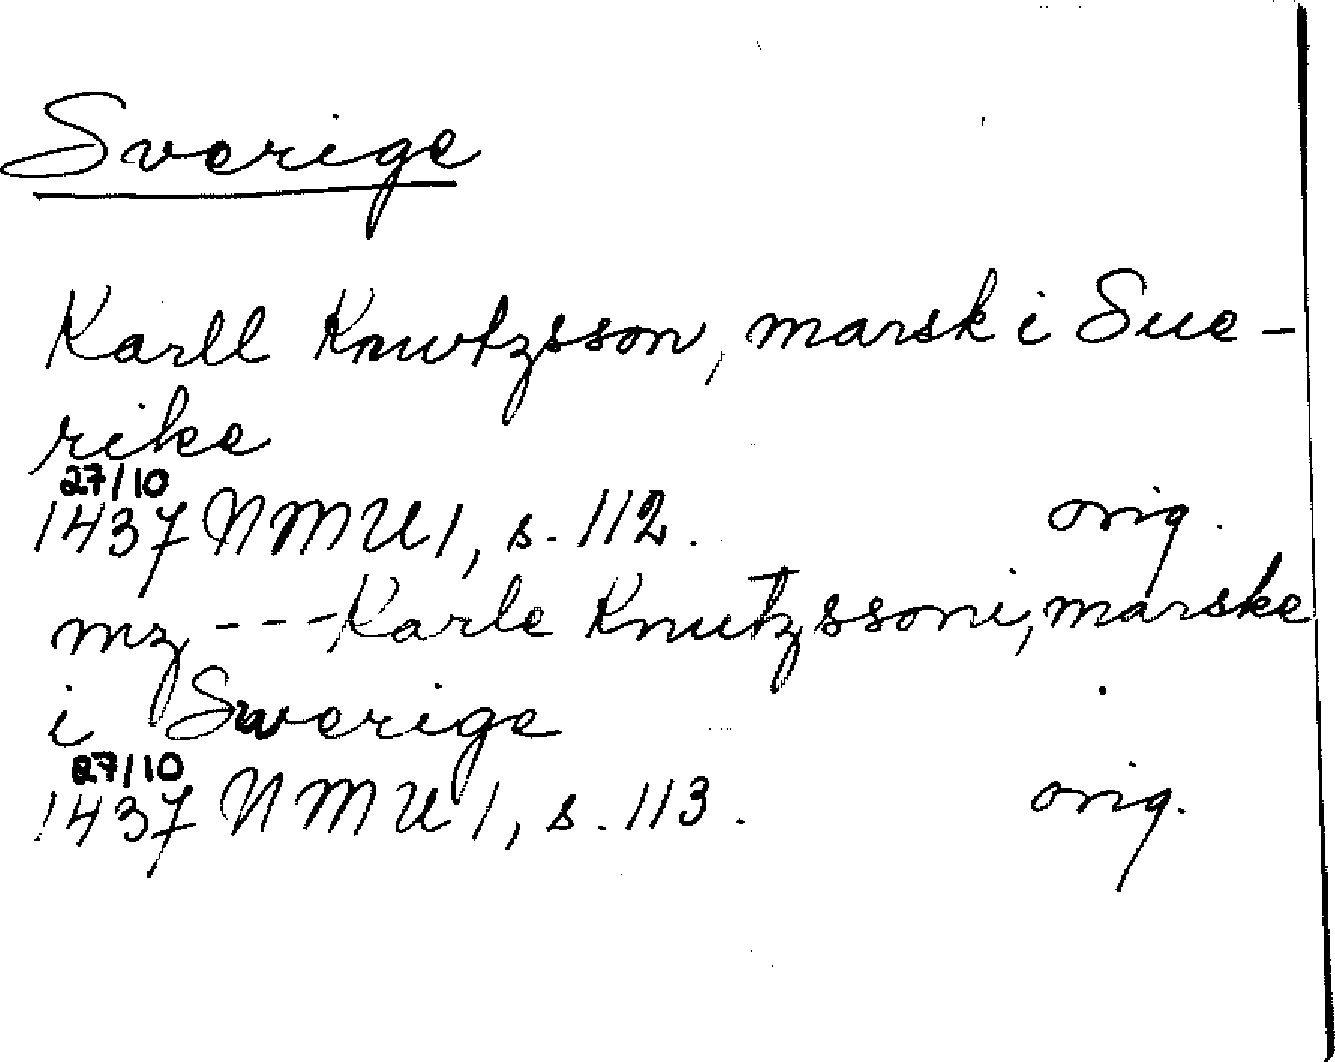 Sverige
Karll Knwtzsson, marsk i Sue-
rike
27/10
1437 NMU1, s. 112. orig.
mz --- Karle Knutzssoni, marske
i Swerige
27/10
1437 NMU1, s. 113. orig.